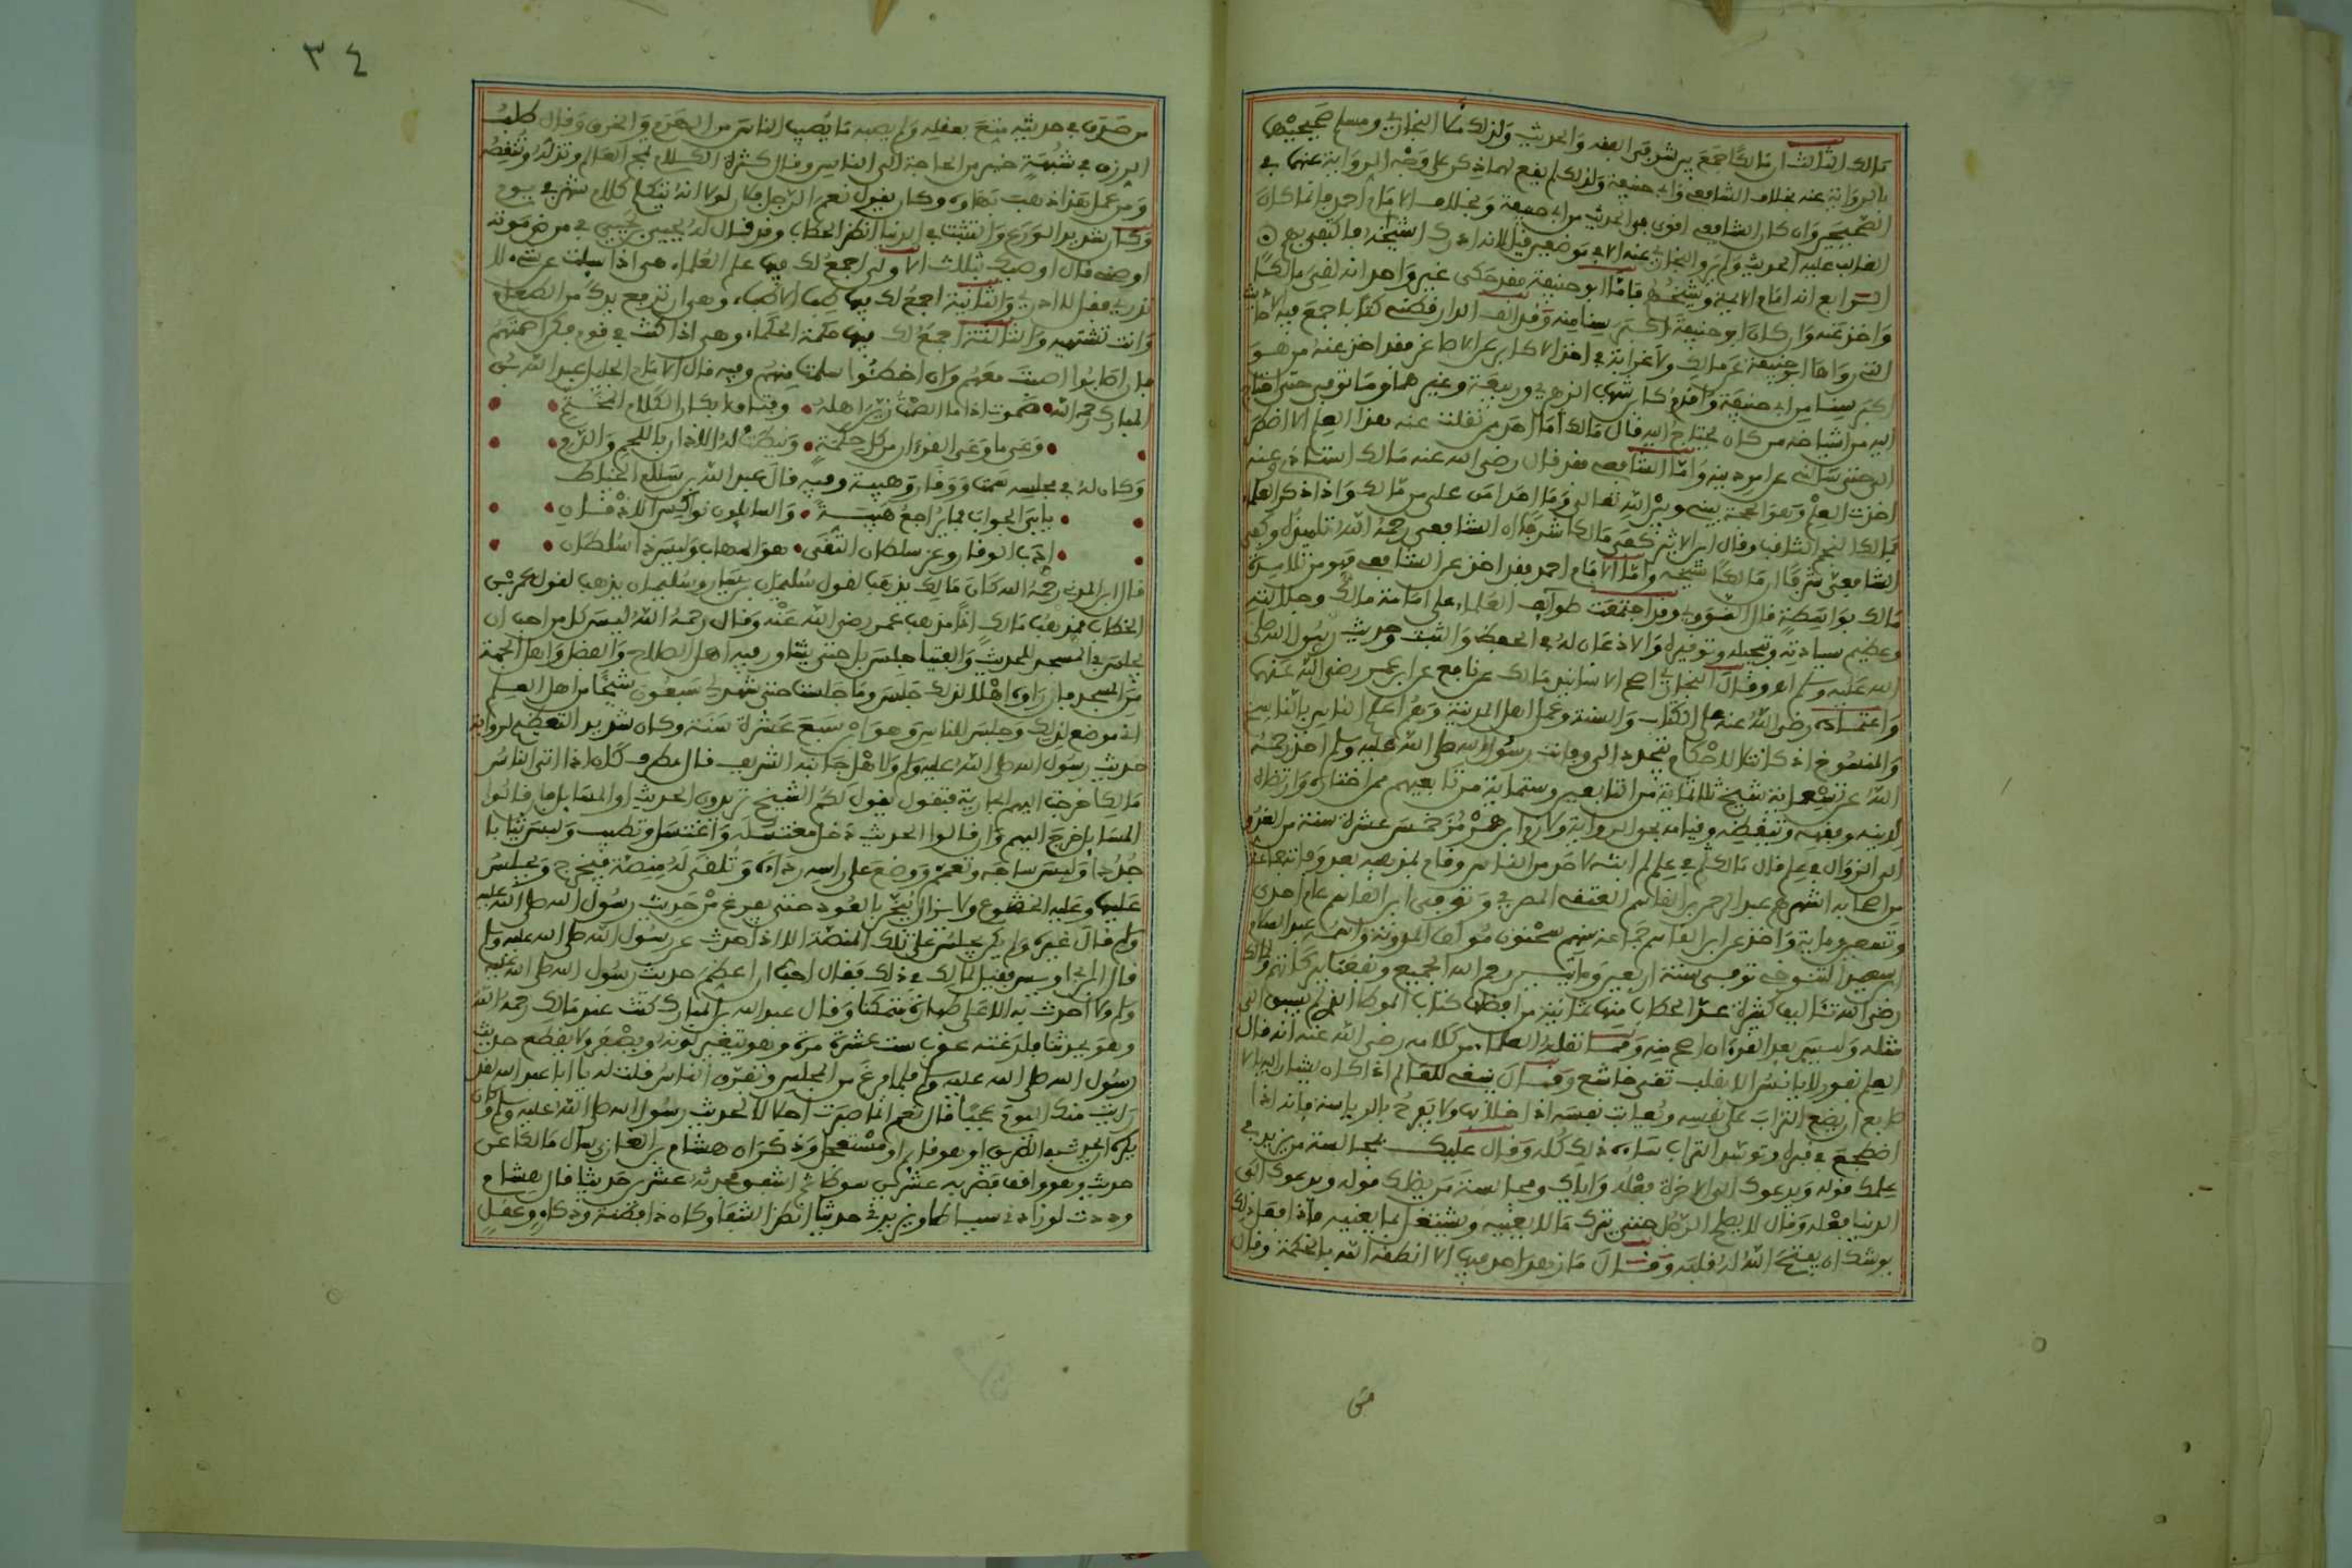 مالك الثالث ان مالكا جمع بين شرفي الفقه والحديث ولذلك ملأ البخاري ومسلم صحيحيهما
بالرواية عنه بخلاف الشافعي وأبي حنيفة ولذلك لم يقع لهما ذكر على وجه الرواية عنهما في
الصحيحين وان كان الشافعي اقوى في الحديث من ابي حنيفة وبخلاف الامام احمد وانما كان
الغالب عليه الحديث ولم يرو البخاري عنه الا في موضعين قيل لانه ادرك اشياخه فاكتفى بهم
الرابع انه امام الائمة وشيخهم فاما ابو حنيفة فقد حكى غير واحد انه لقي مالكا
واخذ عنه وان كان ابو حنيفة اكبر سنا منه وقد الف الدارقطني كتابا جمع فيه الاحاديث
التي رواها ابو حنيفة عن مالك ولا غرابة في اخذ الاكابر عن الاصاغر فقد اخذ عنه من هو
اكبر سنا من ابي حنيفة واقدم كابن شهاب الزهري وربيعة وغيرهما وما توفي حتى احتاج
اليه من اشياخه من كان يحتاج اليه قال مالك اما احد ممن نقلت عنه هذا العلم الا اضطر
الي حتى سالني عن امر دينه واما الشافعي فقد قال رضي الله عنه مالك استاذي وعنه
اخذت العلم وهو الحجة بيني وبين الله تعالى وما احد امن علي من مالك واذا ذكر العلماء
فمالك النجم الثاقب وقال ابن الاثير كفى مالكا شرفا ان الشافعي رحمه الله تلميذه وكفى
الشافعي شرفا ان مالكا شيخه واما الامام احمد فقد اخذ عن الشافعي فهو من تلامذة
مالك بواسطة قال النووي وقد اجتمعت طوائف العلماء على امامة مالك وجلالته
وعظيم سيادته وتبجيله وتوقيره والاذعان له في الحفظ والتثبت وحديث رسول الله صلى
الله عليه وسلم اهـ وقال البخاري اصح الاسانيد مالك عن نافع عن ابن عمر رضي الله عنهما
واعتماده رضي الله عنه على الكتاب والسنة وعمل اهل المدينة وهم اعلم الناس بالناسخ
والمنسوخ اذ كانت الاحكام تتجدد الى وفات رسول الله صلى الله عليه وسلم اخذ رحمه
الله عن تسعمائة شيخ ثلاثمائة من التابعين وستمائة من تابعيهم ممن اختاره وارتضاه
لدينه وفقهه وتيقظه وقيامه بحق الرواية
الى الزوال في علم قال مالك
من اصحابه اشهرهم عبد الرحمن بن القاسم العتقي المصري وتوفي ابن القاسم عام احدى
وتسعين وماية واخذ عن ابن القاسم جماعة منهم سحنون مؤلف المدونة واسمه عبد السلام
بن سعيد التنوخي توفي سنة اربعين ومائتين رحم الله الجميع ونفعنا ببركاتهم ولمالك
رضي الله تئاليف كثيرة عد الحطاب منها ثمانية من افضلها كتاب الموطا الذي لم يسبق الى
مثله وليس بعد القرءان اصح منه ومما نقله العلماء من كلامه رضي الله عنه انه قال
العلم نفور لا يانس الا بقلب تقي خاشع وقال ينبغي للعالم اذا كان يشار اليه بالا
صابع ان يضع التراب على نفسه ويعاتب نفسه اذا خلا بها ولا يفرح بالرياسة فانه اذا
اضطجع في قبره وتوسد التراب ساءه ذلك كله وقال عليك بمجالسة من يزيد في
علمك قوله ويدعوك الى الاخرة فعله واياك ومجالسة من يضلك قوله ويدعوك الى
الدنيا فعله وقال لا يصلح الرجل حتى يترك ما لا يعنيه ويشتغل بما يعنيه فاذا فعل ذلك
يوشك ان يفتح الله له قلبه وقال ما زهد احد فيها الا انطقه الله بالحكمة وقال
من
٣٤
من صدق في حديثه متع بعقله ولم يصبه ما يصيب الناس من الهرم والخرف وقال طلب
الرزق في شبهة خير من الحاجة الى الناس وقال كثرة الكلام تمج العالم وتذله وتنقصه
ومن عمل هذا ذهب بهاؤه وكان يقول نعم الرجل فلان لولا انه يتكلم كلام شهر في يوم
وكان شديد الورع والتثبت في الدنيا انظر الحطاب وقد قال له يحيى بن يحيى في مرض موته
اوصني قال اوصيك بثلاث الاولى اجمع لك فيها علم العلماء هي اذا سئلت عن شيء لا
تدري فقل لا ادري والثانية اجمع لك فيها طب الاطباء وهي ان ترفع يدك من الطعام
وانت تشتهيه والثالثة اجمع لك فيها حكمة الحكماء وهي اذا كنت في قوم فكن اصمتهم
فان اصابوا اصبت معهم وان اخطئوا سلمت منهم وفيه قال الامام الجليل عبد الله بن
المبارك رحمه الله • صموت اذا ما الصمت زين اهله • وفتاق ابكار الكلام المختم •
• وعى ما وعى القرءان من كل حكمة • ونيطت له الاداب باللحم والدم •
وكان له في مجلسه سمت ووقار وهيبة وفيه قال عبد الله بن سالم الخياط
• يابى الجواب فما يراجع هيبة • والسائلون نواكس الاذقان •
• ادب الوقار وعز سلطان التقى • هو المهاب وليس ذا سلطان •
قال ابن المديني رحمه الله كان مالك يذهب لقول سليمان بن يسار وسليمان يذهب لقول عمر بن
الخطاب فمذهب مالك اذا مذهب عمر رضي الله عنه وقال رحمه الله ليس كل من احب ان
يجلس في المسجد للحديث والفتيا جلس بل حتى يشاور فيه اهل الصلاح والفضل واهل الجهة
من المسجد فان راوه اهلا لذلك جلس وما جلست حتى شهد لي سبعون شيخا من اهل العلم
اني موضع لذلك وجلس للناس وهو ابن سبع عشرة سنة وكان شديد التعظيم لرواية
حديث رسول الله صلى الله عليه وسلم ولاهل جانبه الشريف قال مطرف كان اذا اتى الناس
مالكا خرجت اليهم الجارية فتقول يقول لكم الشيخ تريدون الحديث او المسايل فان قالوا
المسايل خرج اليهم وان قالوا الحديث دخل مغتسله واغتسل وتطيب ولبس ثيابا
جددا ولبس ساجه وتعمم ووضع على راسه رداءه وتلقى له منصة فيخرج ويجلس
عليها وعليه الخشوع ولا يزال يبخر بالعود حتى يفرغ من حديث رسول الله صلى الله عليه
وسلم قال غيره ولم يكن يجلس على تلك المنصة الا اذا حدث عن رسول الله صلى الله عليه وسلم
قال ابن ابي اويس فقيل لمالك في ذلك فقال احب ان اعظم حديث رسول الله صلى الله عليه
وسلم ولا احدث به الا على طهارة متمكنا وقال عبد الله بن المبارك كنت عند مالك رحمه الله
وهو يحدثنا فلدغته عقرب ست عشرة مرة وهو يتغير لونه ويصفر ولا يقطع حديث
رسول الله صلى الله عليه وسلم فلما فرغ من المجلس وتفرق الناس قلت له يا ابا عبد الله لقد
رايت منك اليوم عجبا قال نعم انما صبرت اجلالا لحديث رسول الله صلى الله عليه وسلم وكان
يكره ان يحدث في الطريق او هو قائم او مستعجل وذكر ان هشام بن الغازي سال مالكا عن
حديث وهو واقف فضربه عشرين سوطا ثم اشفق فحدثه عشرين حديثا قال هشام
وددت لو زادني سياطا ويزيدني حديثا انظر الشفا وكان ذا فطنة وذكاء وعقل